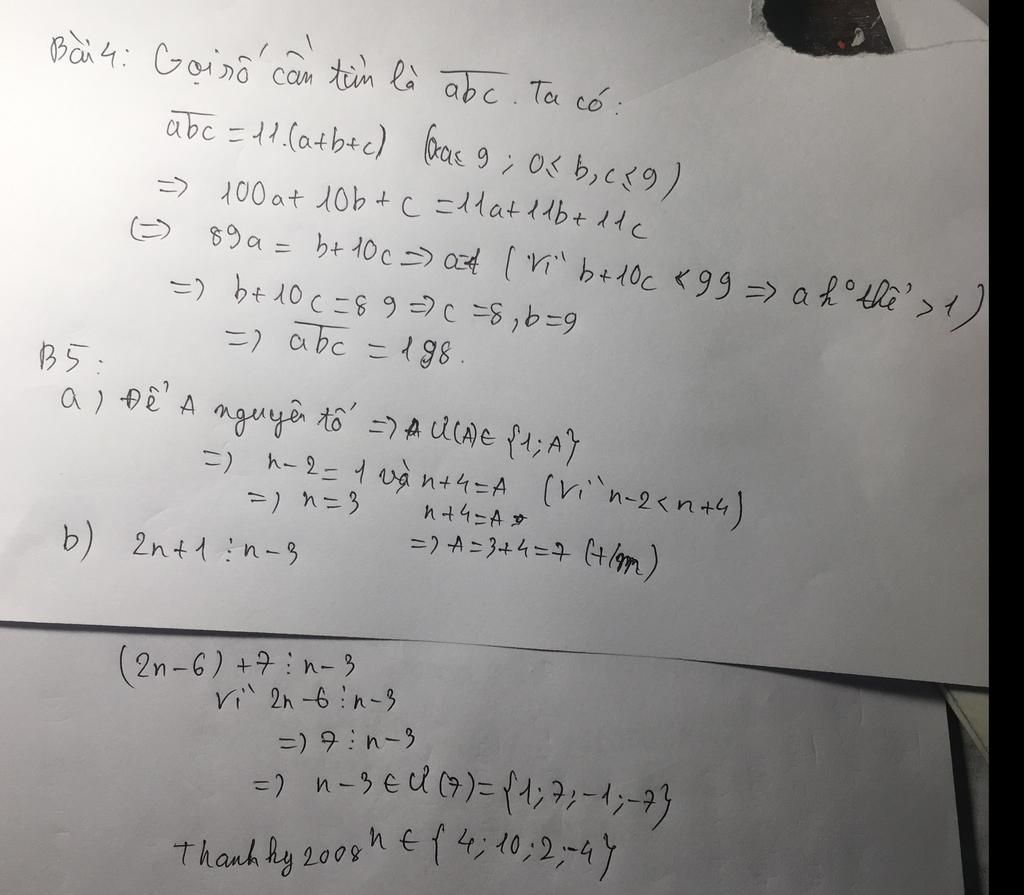 Bài 4: Gọi số cần tìm là abc. Ta có:
abc = 11.(a+b+c) (0<a≤9; 0≤b,c≤9)
=> 100a+10b+c=11a+11b+11c
(=> 89a = b+10c => a=1 (Vì b+10c <99 => a k° thể >1)
=> b+10c=89 => c=8, b=9
=> abc = 198.
B5:
a) Để A nguyên tố => A Ư(A)∈ {1;A}
=> n-2=1 và n+4=A (Vì n-2<n+4)
=> n=3 n+4=A
=> A=3+4=7 (t/m)
b) 2n+1 ⋮ n-3
(2n-6)+7 ⋮ n-3
Vì 2n-6 ⋮ n-3
=> 7 ⋮ n-3
=> n-3 ∈ Ư(7)={1;7;-1;-7}
Thanhhy2008 n ∈ {4;10;2;-4}